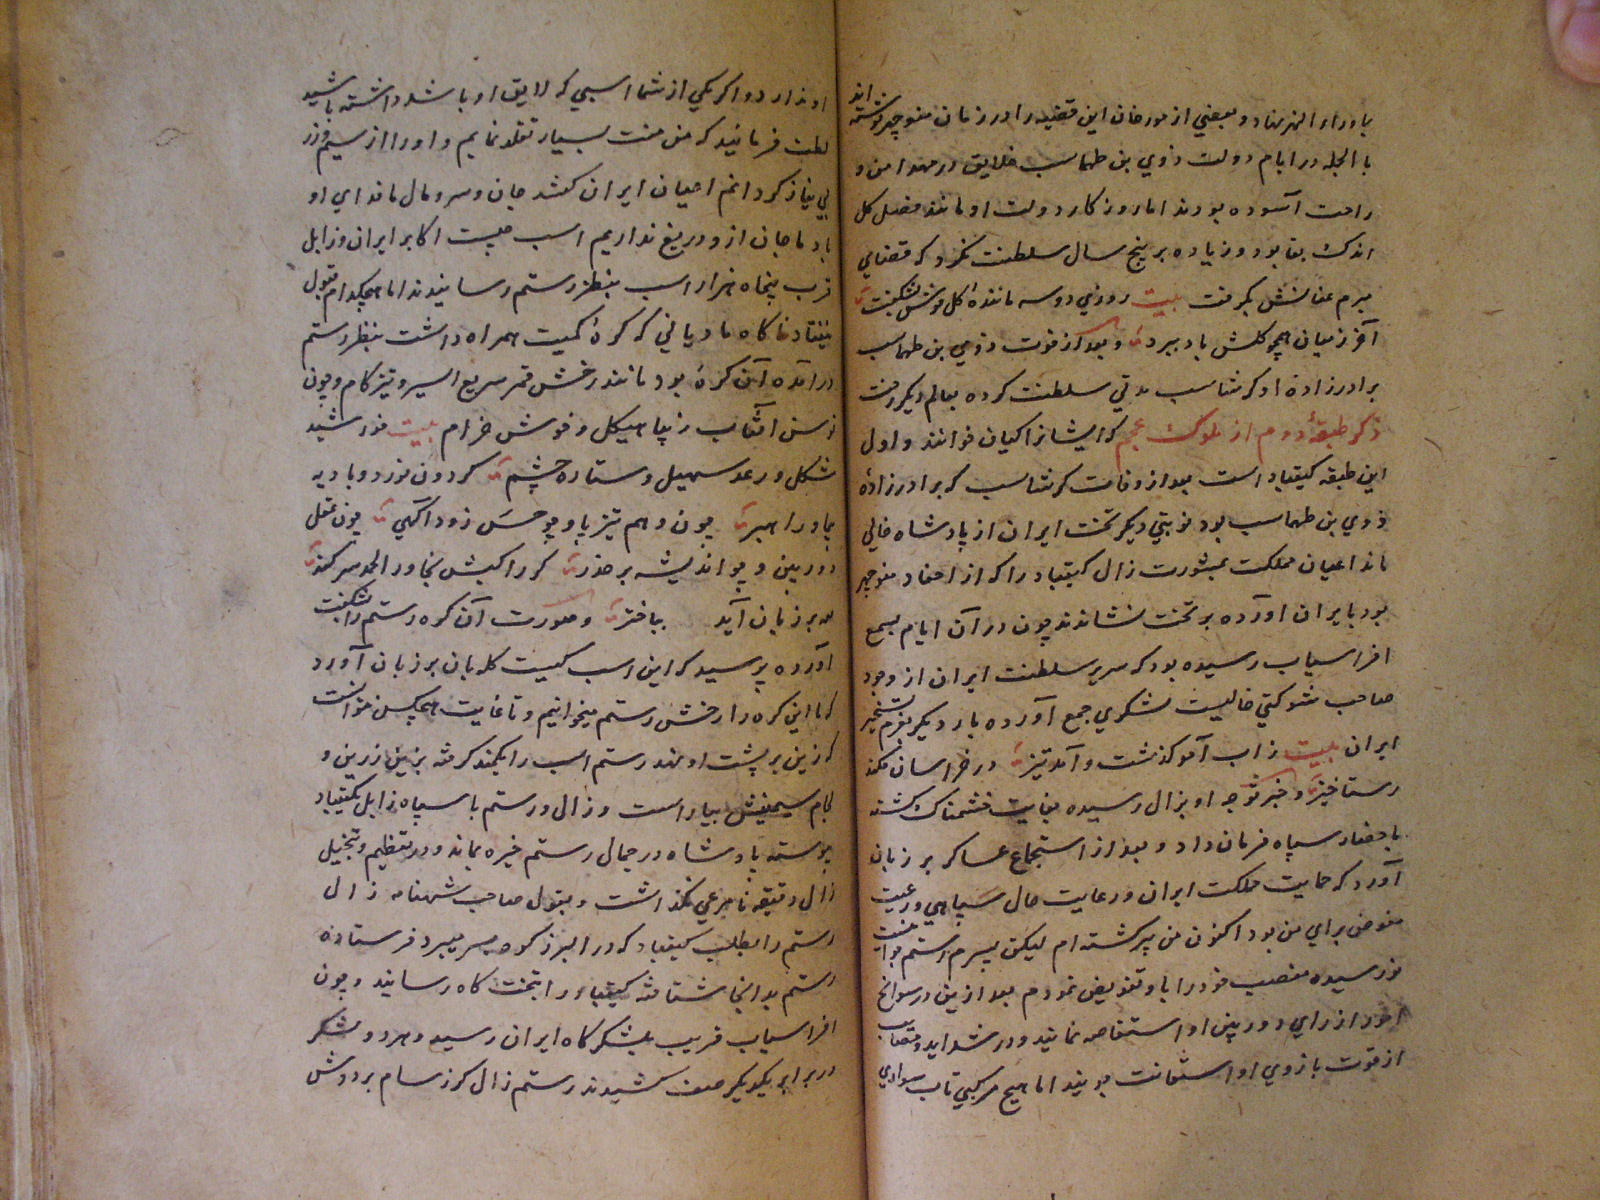 باوراء النهر نهاد و بعضي از مورخان اين قضيه را در زمان منوچهر نوشته اند
با الجمله در ايام دولت زوي بن طهماسب خلايق در مهد امن و
راحت آسوده بودند اما روزكار دولت او مانند فصل كل
اندك بقا بود و زياده بر پنج سال سلطنت نكرد كه قضاي
مبرم عنانش بكرفت بيت روزي دوسه مانندۀ كل خوش بشكفت
آخر ز ميان همچو كلش باد ببرد و بعد از فوت زوي بن طهماسب
برادرزادۀ او كرشاسب مدتي سلطنت كرده بعالم ديكر رفت
ذكر طبقۀ دوم از ملوك عجم كه ايشانرا كيان خوانند و اول
اين طبقه كيقباد است بعد از وفات كرشاسب كه برادرزادۀ
زوي بن طهماسب بود نوبتي ديكر تخت ايران از پادشاه خالي
ماند اعيان مملكت بمشورت زال كيقباد را كه از احفاد منوچهر
بود بايران اورده بر تخت نشاندند چون در آن ايام بسمع
افراسياب رسيده بود كه سرير سلطنت ايران از وجود
صاحب شوكتي خاليست لشكري جمع آورده بار ديكر بعزم تسخير
ايران بيت ز اب آمو كذشت و آمد تيز در خراسان فكند
رستاخيز و خبر توجه او بزال رسيده بغايت خشمناك كشته
باحضار سپاه فرمان داد و بعد از استجماع عساكر بر زبان
آورد كه حمايت مملكت ايران و رعايت حال سپاهي و رعيت
مفوض براي من بود اكنون من پير كشته ام ليكن پسرم رستم بوانيت
نو رسيده منصب خود را باو تفويض نمودم بعد ازين در سوانح
امور از راي دوربين او استفاضه نمائيد و در شدايد و مصائب
از قوت بازوي او استعانت جوئيد اما هيچ مركبي تاب سواري
او ندارد اكر يكي از شما اسبي كه لايق او باشد داشته باشيد
لطف فرمائيد كه من منت بسيار تقلد نمايم و او را از سيم و زر
بي نياز كردانم اعيان ايران كفتند جان و سر و مال ما فداي او
باد ما جان ازو دريغ نداريم اسب چيست اكابر ايران و زابل
قرب پنجاه هزار اسب بنظر رستم رسانيدند اما هيچكدام قبول
نيفتاد ناكاه ماديانى كه كرۀ كميت همراه داشت بنظر رستم
درآمده آن كرۀ بود مانند رخش قمر سريع السير و تيزكام و چون
توسن آفتاب زيبا هيكل و خوش خرام بيت خورشيد
شكل و رعد سهيل و ستاره چشم كردون نورد و باديه
پيما و راهبر چون وهم تيز پا و چو حس زود آكهي چون عقل
دوربين و چو انديشه بر حذر كر راكبش بخاور الحمد سر كند
مد بر زبان آيد بباختر و صورت آن كره رستم را شكفت
آورده پرسيد كه اين اسب كيست كله بان بر زبان آورد
كه ما اين كره را رخش رستم ميخوانيم و تا غايت هيچكس نتوانست
كه زين بر پشت او نهد رستم اسب را بكمند كرفته بزين زرين و
لجام سيمينش بياراست و زال و رستم با سپاه زابل بكيقباد
پيوسته پادشاه در جمال رستم خيره بماند و در تعظيم و تبجيل
زال دقيقۀ نامرعي نكذاشت و بقول صاحب شهنامه زال
رستم را بطلب كيقباد كه در البرز كوه بسر ميبرد فرستاده
رستم بدانجا شتافته كيقباد را بتخت كاه رسانيد و چون
افراسياب قريب بلشكر كاه ايران رسيد و هر دو لشكر
در برابر يكديكر صف كشيدند رستم زال كرز سام بر دوش